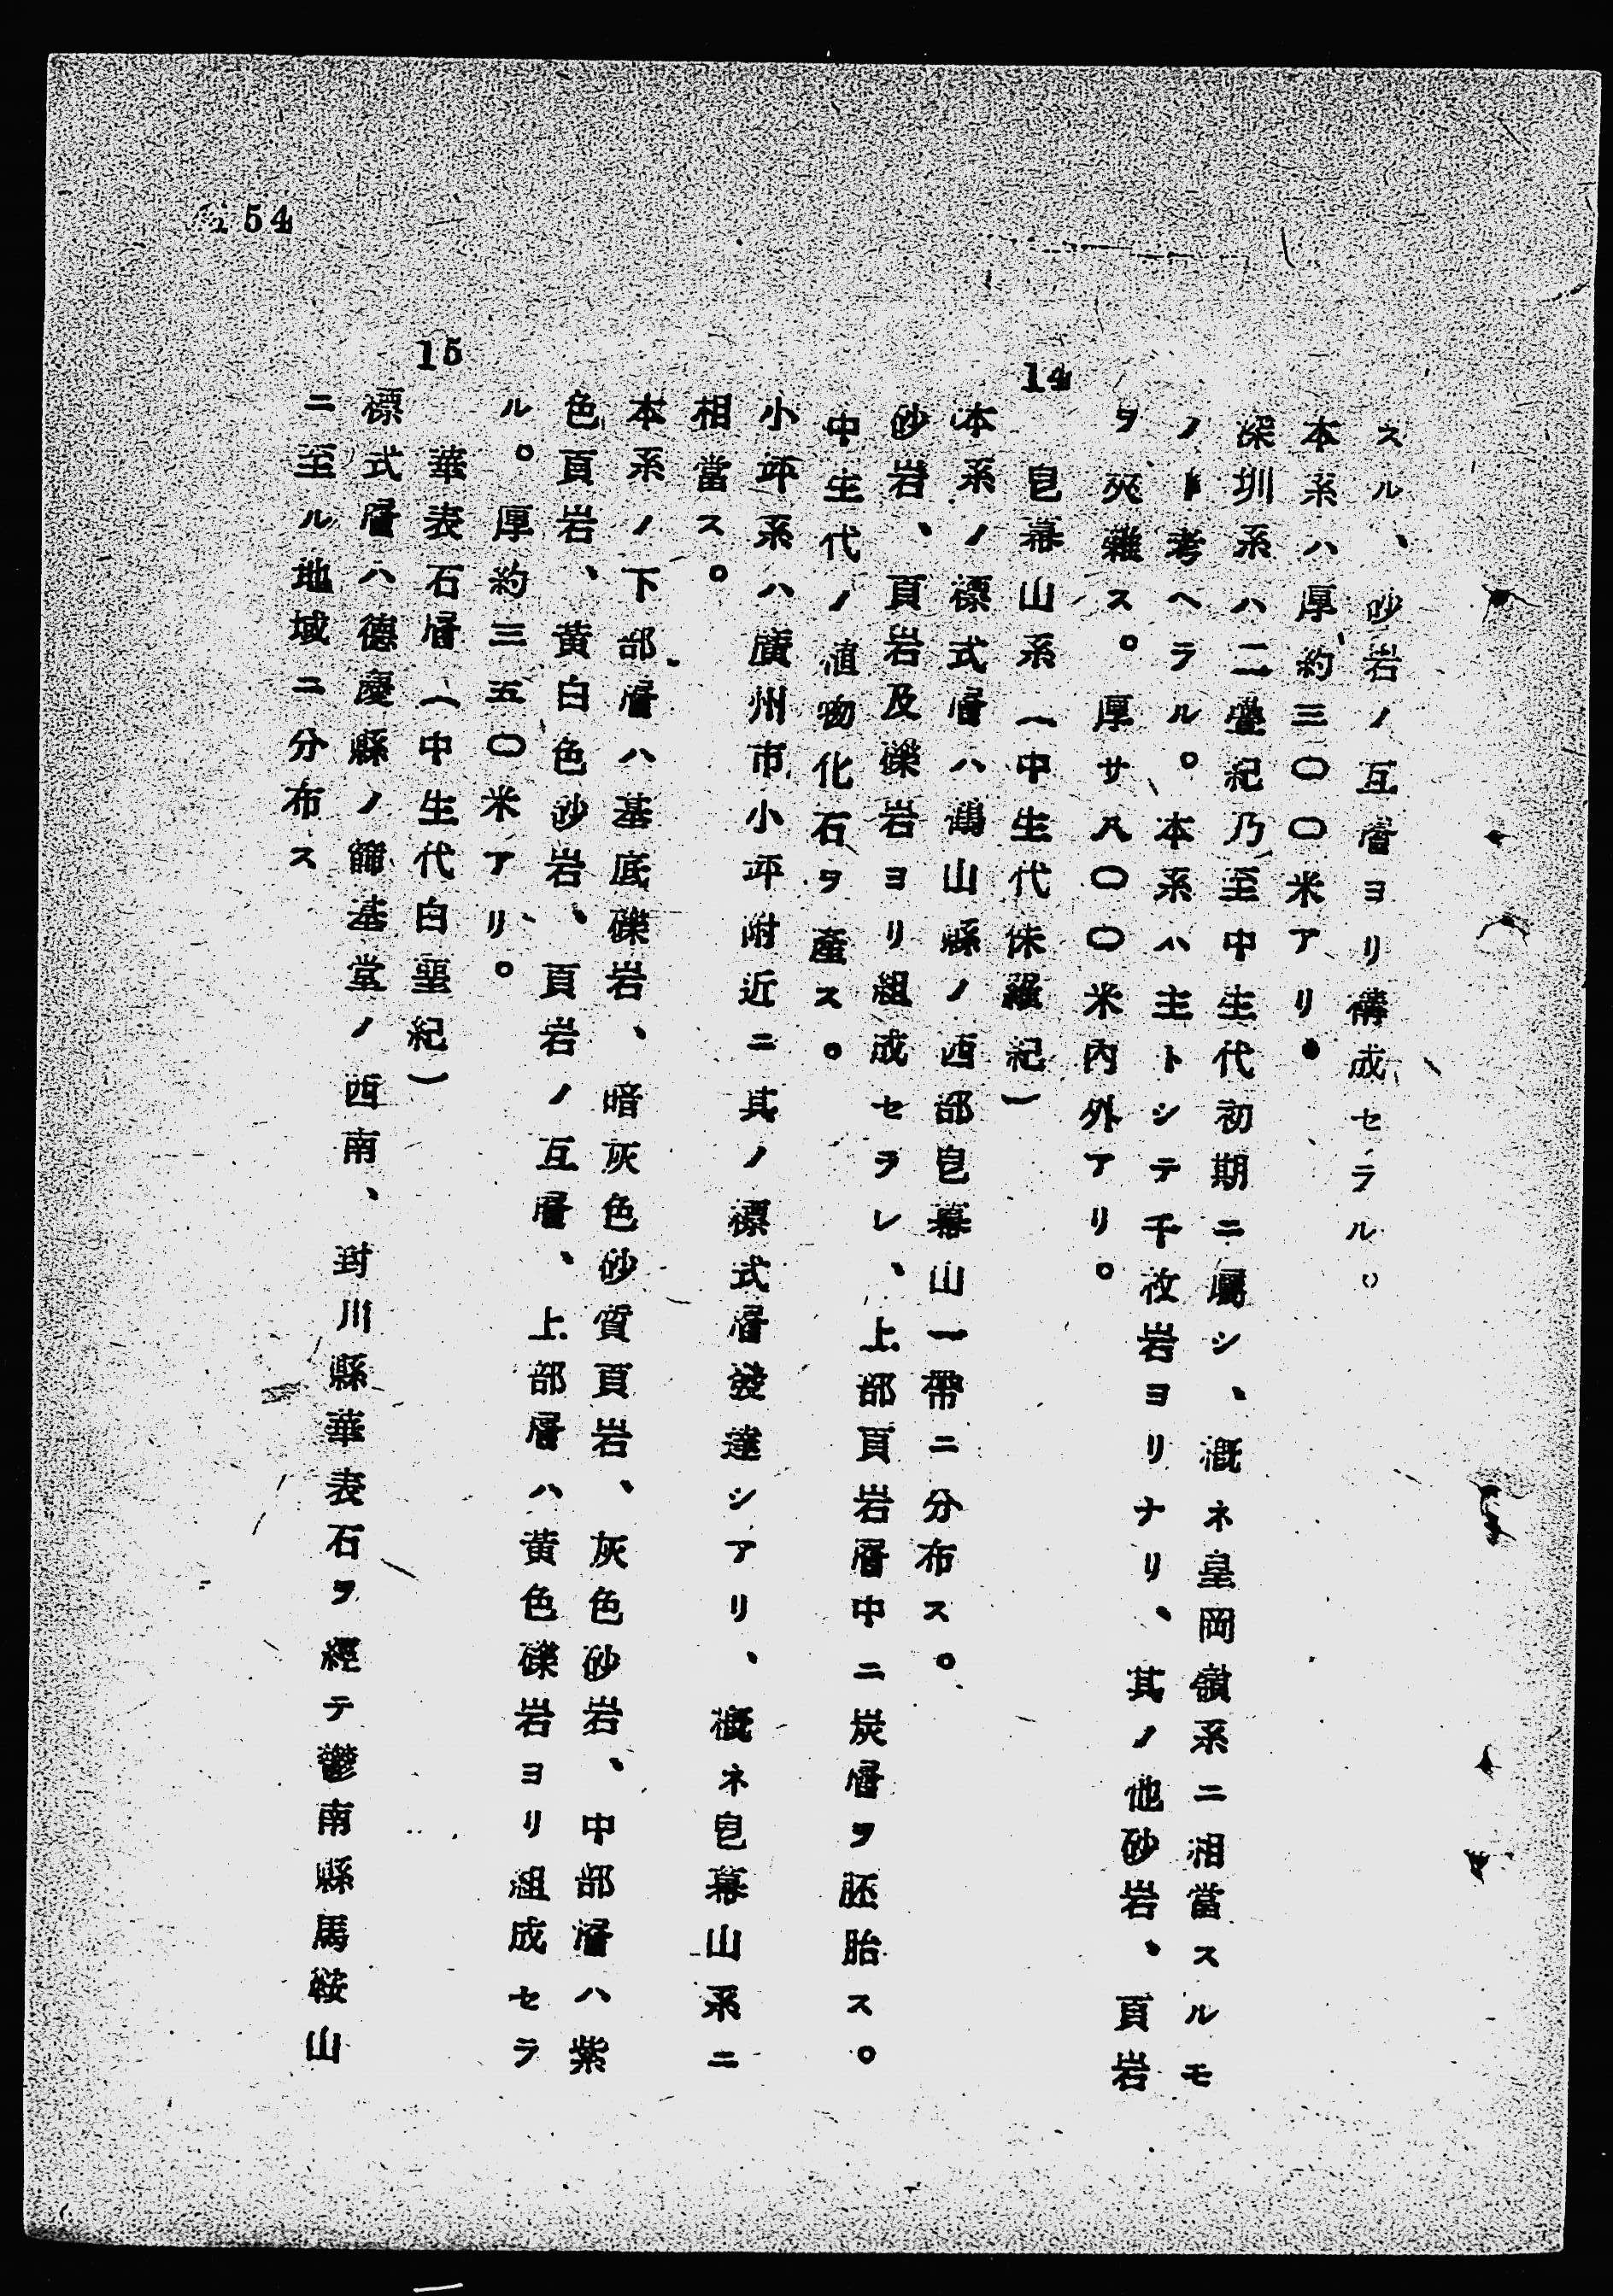 スル、砂岩ノ互層ヨリ構成セラル。
本系ハ厚約三〇〇〇米アリ。
深圳系ハ二疊紀乃至中生代初期ニ屬シ、概ネ皇岡嶺系ニ相當スルモ
ノト考ヘラル。本系ハ主トシテ千枚岩ヨリナリ、其ノ他砂岩、頁岩
ヲ夾雜ス。厚サ八〇〇米內外アリ。
14 皀幕山系(中生代侏羅紀)
本系ノ標式層ハ鶴山縣ノ西部皀幕山一帶ニ分布ス。
砂岩、頁岩及礫岩ヨリ組成セラレ、上部頁岩層中ニ炭層ヲ胚胎ス。
中生代ノ植物化石ヲ產ス。
小坪系ハ廣州市小坪附近ニ其ノ標式層發達シアリ、概ネ皀幕山系ニ
相當ス。
本系ノ下部層ハ基底礫岩、暗灰色砂質頁岩、灰色砂岩、中部層ハ紫
色頁岩、黃白色砂岩、頁岩ノ互層、上部層ハ黃色礫岩ヨリ組成セラ
ル。厚約三五〇米アリ。
15 華表石層(中生代白堊紀)
標式層ハ德慶縣ノ篩基堂ノ西南、封川縣華表石ヲ經テ鬱南縣馬鞍山
ニ至ル地域ニ分布ス
54